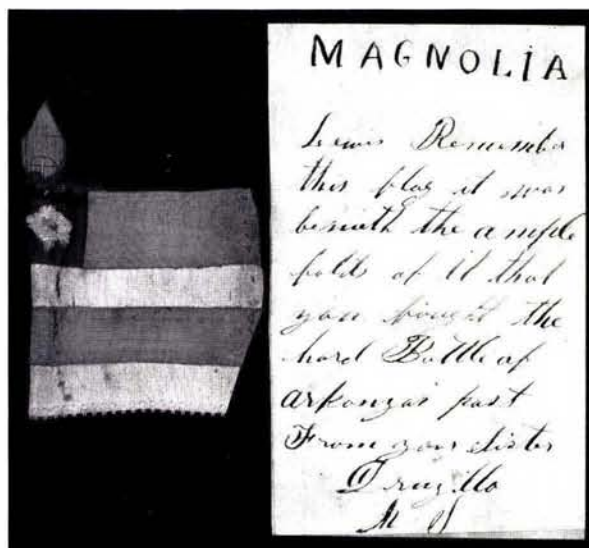 MAGNOLIA
Lewis Remember
this flag it was
beneith the ample
folds of it that
you fought the
hard Battle of
arkanzas post
From your sister
Druzilla